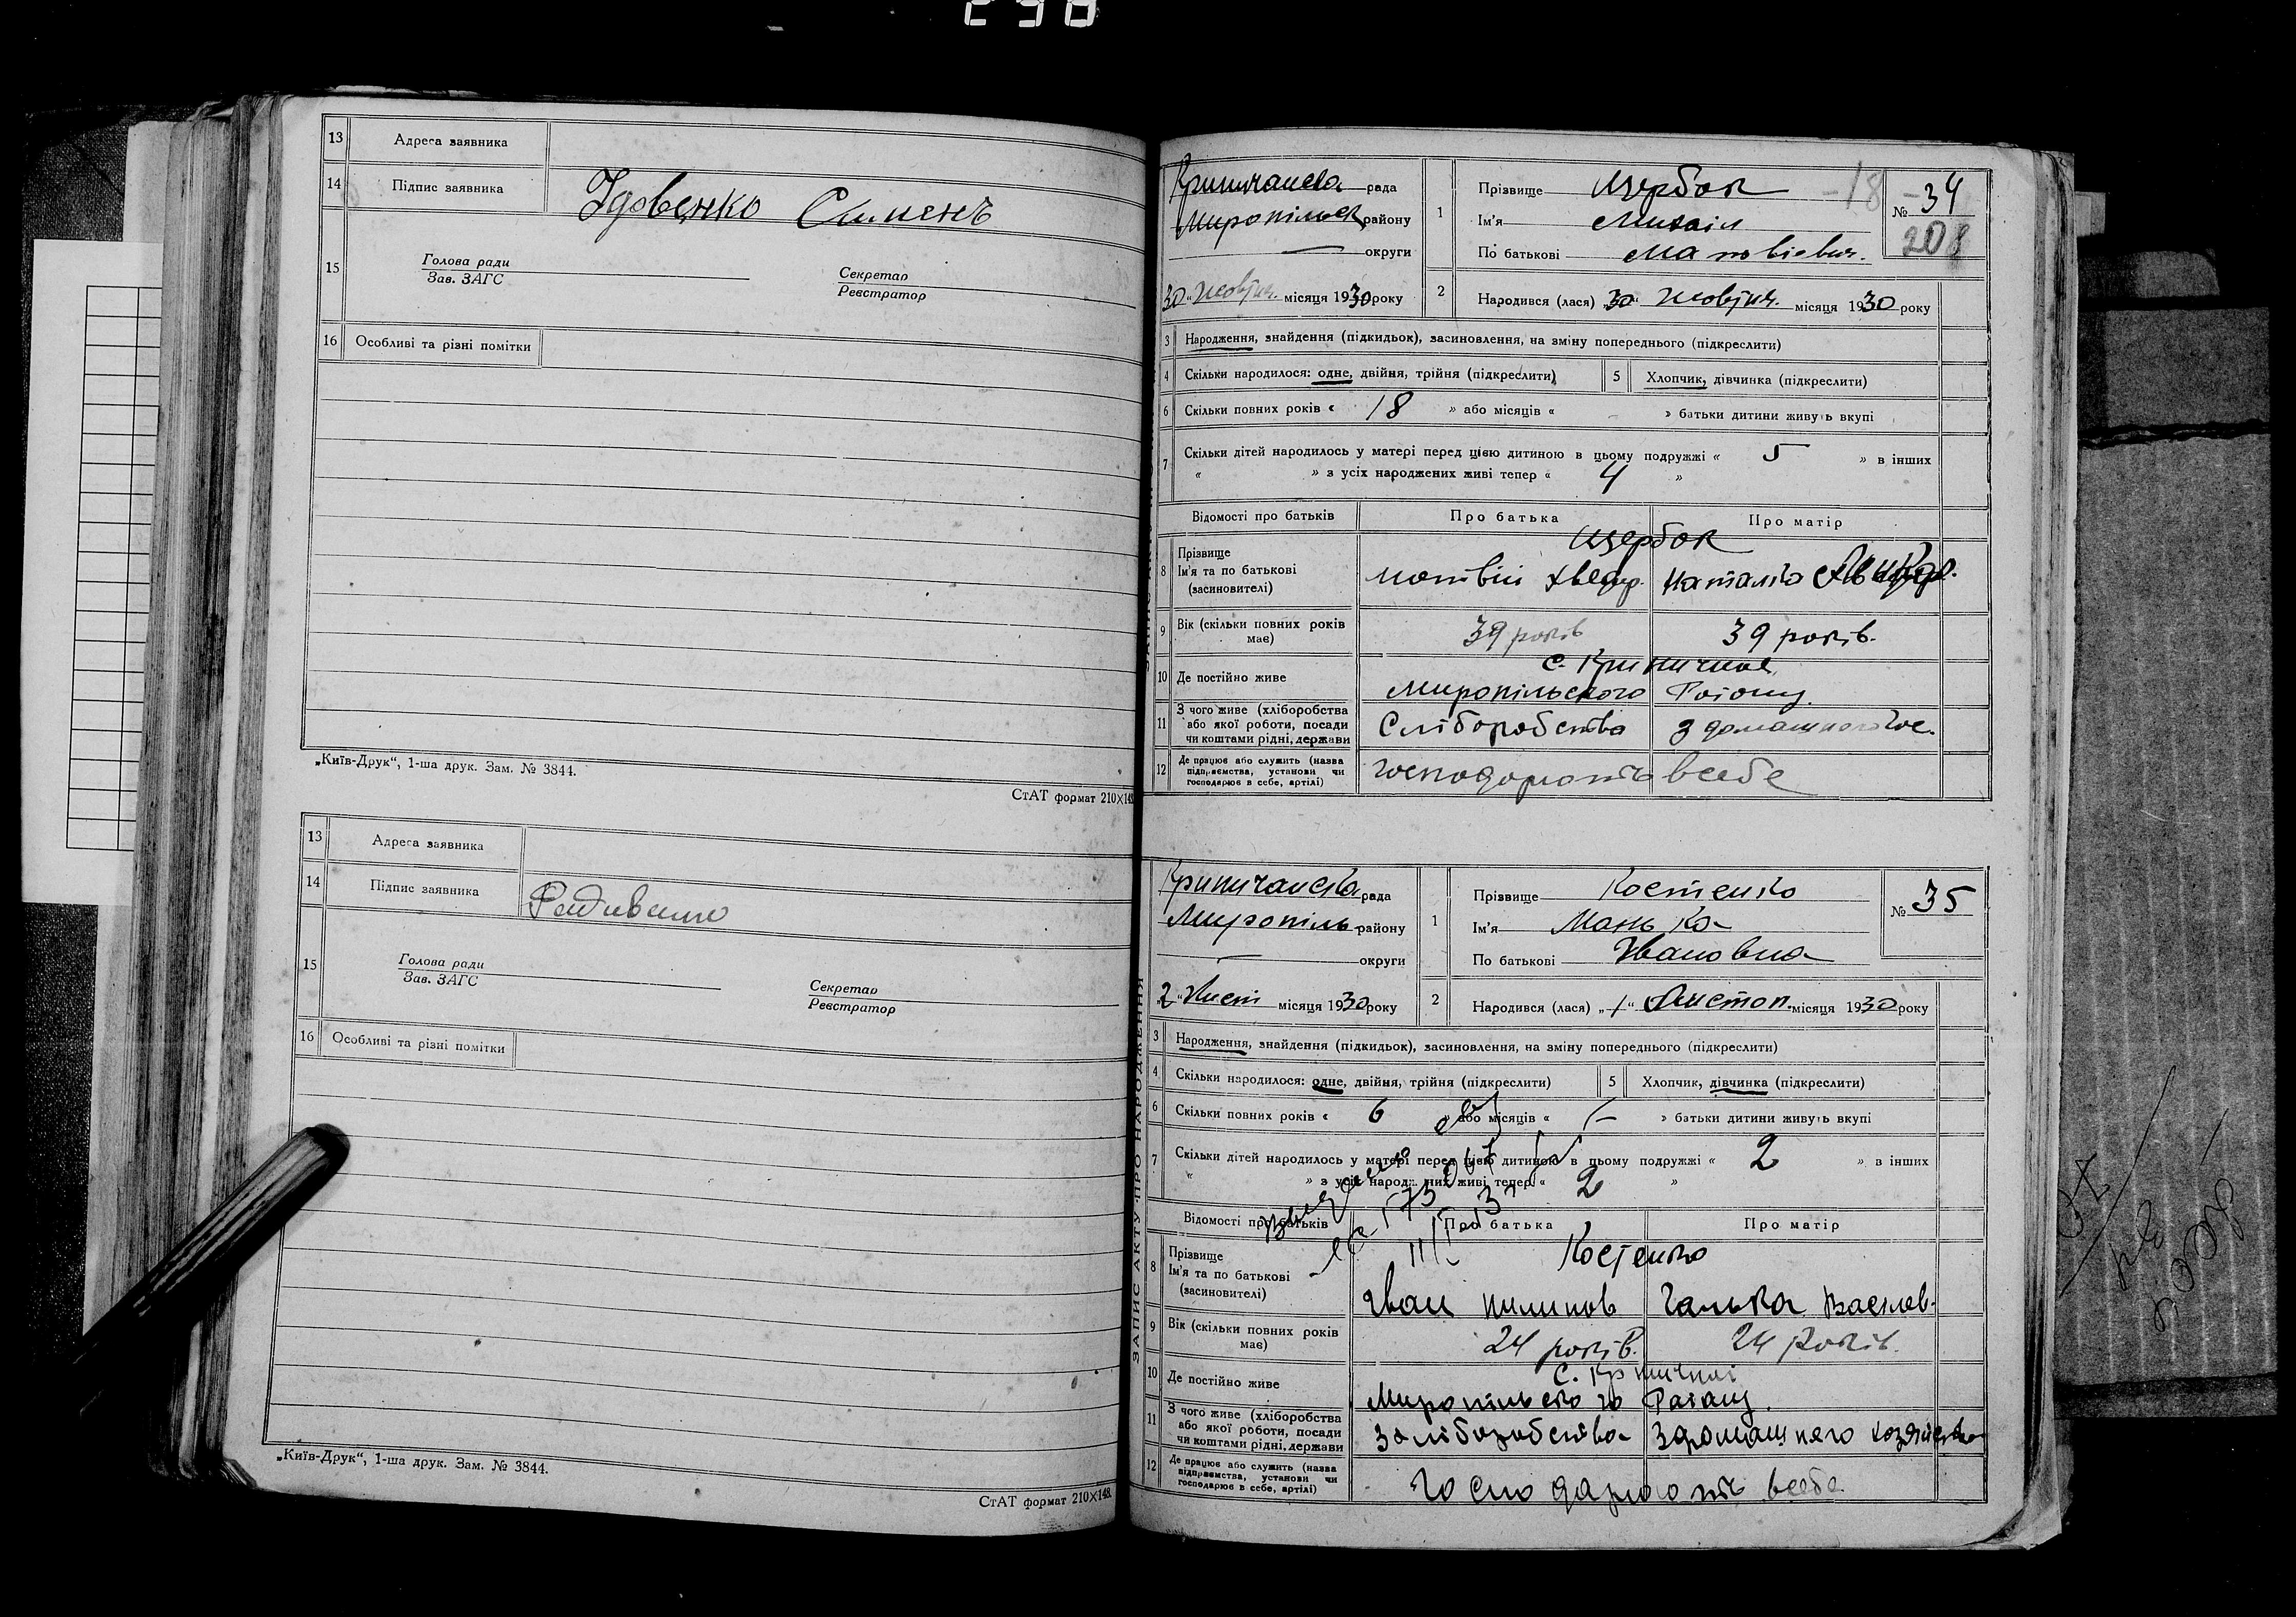 13 Адреса заявника
14 Підпис заявника Удовенко Сименъ
15 Голова ради
Зав. ЗАГС
Секретар
Реєстратор
16 Особливі та різні помітки
„Київ-Друк“, 1-ша друк. Зам. № 3844.
СтАТ формат 210×148
13 Адреса заявника
14 Підпис заявника
15 Голова ради
Зав. ЗАГС
Секретар
Реєстратор
16 Особливі та різні помітки
„Київ-Друк“, 1-ша друк. Зам. № 3844.
СтАТ формат 210×148.
рада
Миропільск району
округи
30 " Жовтн. місяця 1930 року
1 Прізвище Щербак
Ім'я Михаіл
По батькові
-18
№ 34
208
2 Народився (лася) „30“ Жовтн. місяця 1930 року
3 Народження, знайдення (підкидьок), засиновлення, на зміну попереднього (підкреслити)
4 Скільки народилося: одне, двійня, трійня (підкреслити) 5 Хлопчик, дівчинка (підкреслити)
6 Скільки повних років « 18 » або місяців « - » батьки дитини живуть вкупі
7 Скільки дітей народилось у матері перед цією дитиною в цьому подружжі « 5 » в інших
« » з усіх народжених живі тепер « 4 »
Відомості про батьків Про батька Про матір
8 Прізвище
Ім'я та по батькові
(засиновителі)
Щербак
Матвій Хведр. Наталка
9 Вік (скільки повних років має) 39 років 39 років.
10 Де постійно живе
с. Криничное
Миропільского Раіону
11 З чого живе (хліборобства
або якої роботи, посади
чи коштами рідні, держави
Сліборобства З домашного хос.
12 Де працює або служить (назва
підприємства, установи чи
господарює в себе, артілі)
господарюють всебе
ЗАПИС АКТУ ПРО НАРОДЖЕННЯ
рада
Миропіль району
округи
2 " Лист місяця 1930 року
1 Прізвище Костенко
Ім'я Манька
По батькові Ивановна
№ 35
2 Народився (лася) „1“ Листоп. місяця 1930 року
3 Народження, знайдення (підкидьок), засиновлення, на зміну попереднього (підкреслити)
4 Скільки народилося: одне, двійня, трійня (підкреслити) 5 Хлопчик, дівчинка (підкреслити)
6 Скільки повних років « 6 » або місяців « - » батьки дитини живуть вкупі
7 Скільки дітей народилось у матері перед цією дитиною в цьому подружжі « 2 » в інших
« » з усіх народжених живі тепер « 2 »
Відомості про батьків Про батька Про матір
8 Прізвище
Ім'я та по батькові
(засиновителі)
Костенко
Иван Пилипов Галька Василев.
9 Вік (скільки повних років має) 24 років. 24 років.
10 Де постійно живе
с. Криничні
Миропільского Раіону
11 З чого живе (хліборобства
або якої роботи, посади
чи коштами рідні, держави
Здомашнего хозяйства
12 Де працює або служить (назва
підприємства, установи чи
господарює в себе, артілі)
Господарюють всебе